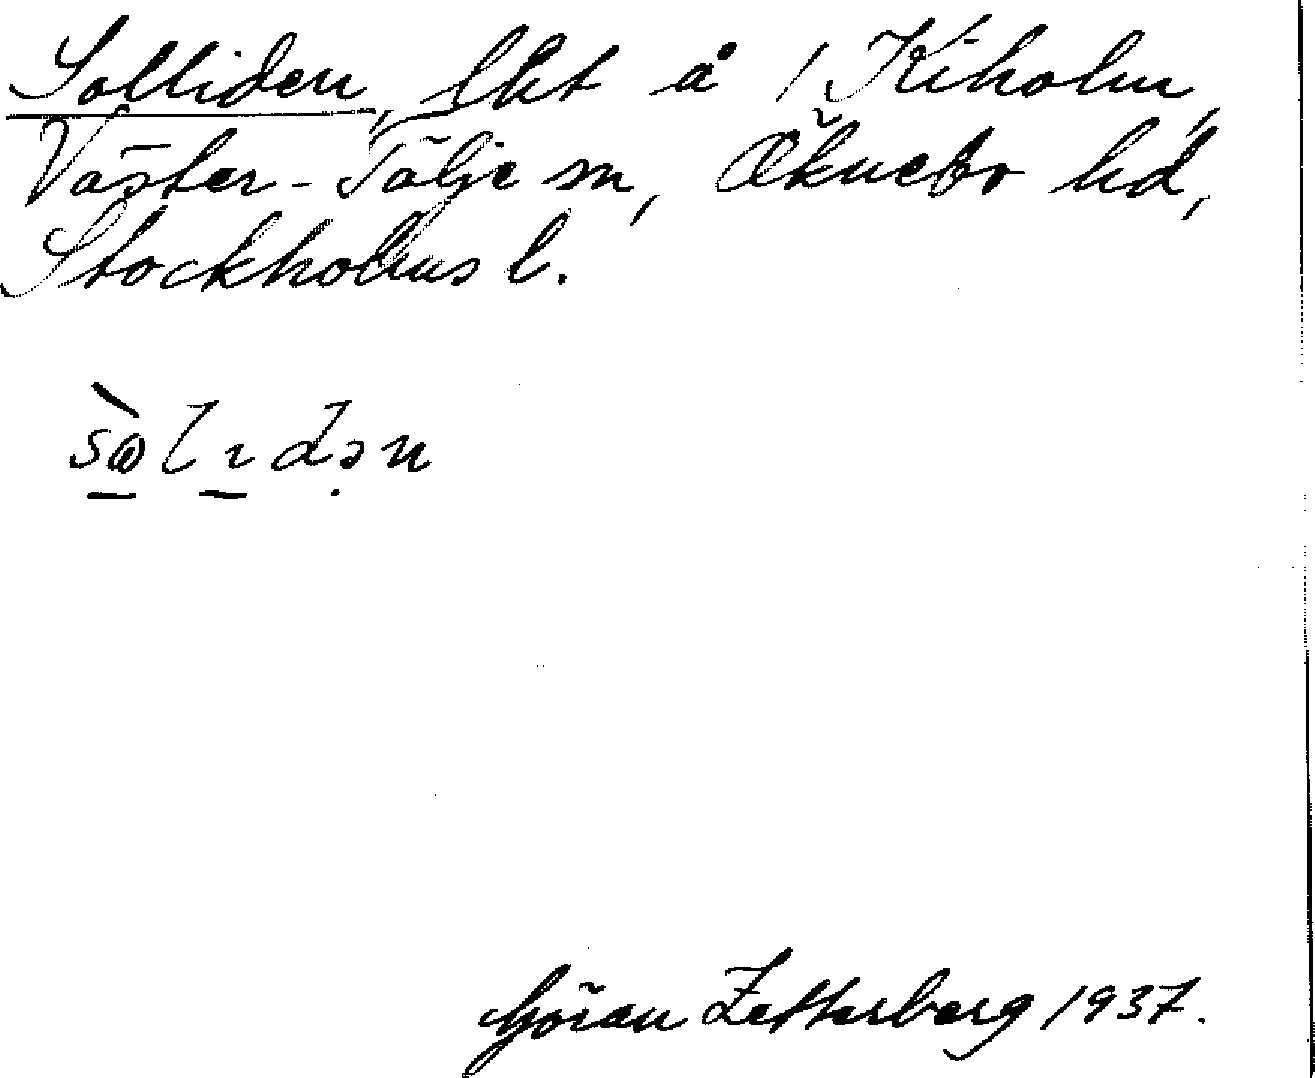 Solliden, lht å 1 Kiholm,
Väster-Tälje sn, Öknebo hd,
Stockholms l.
Göran Zetterberg 1937.